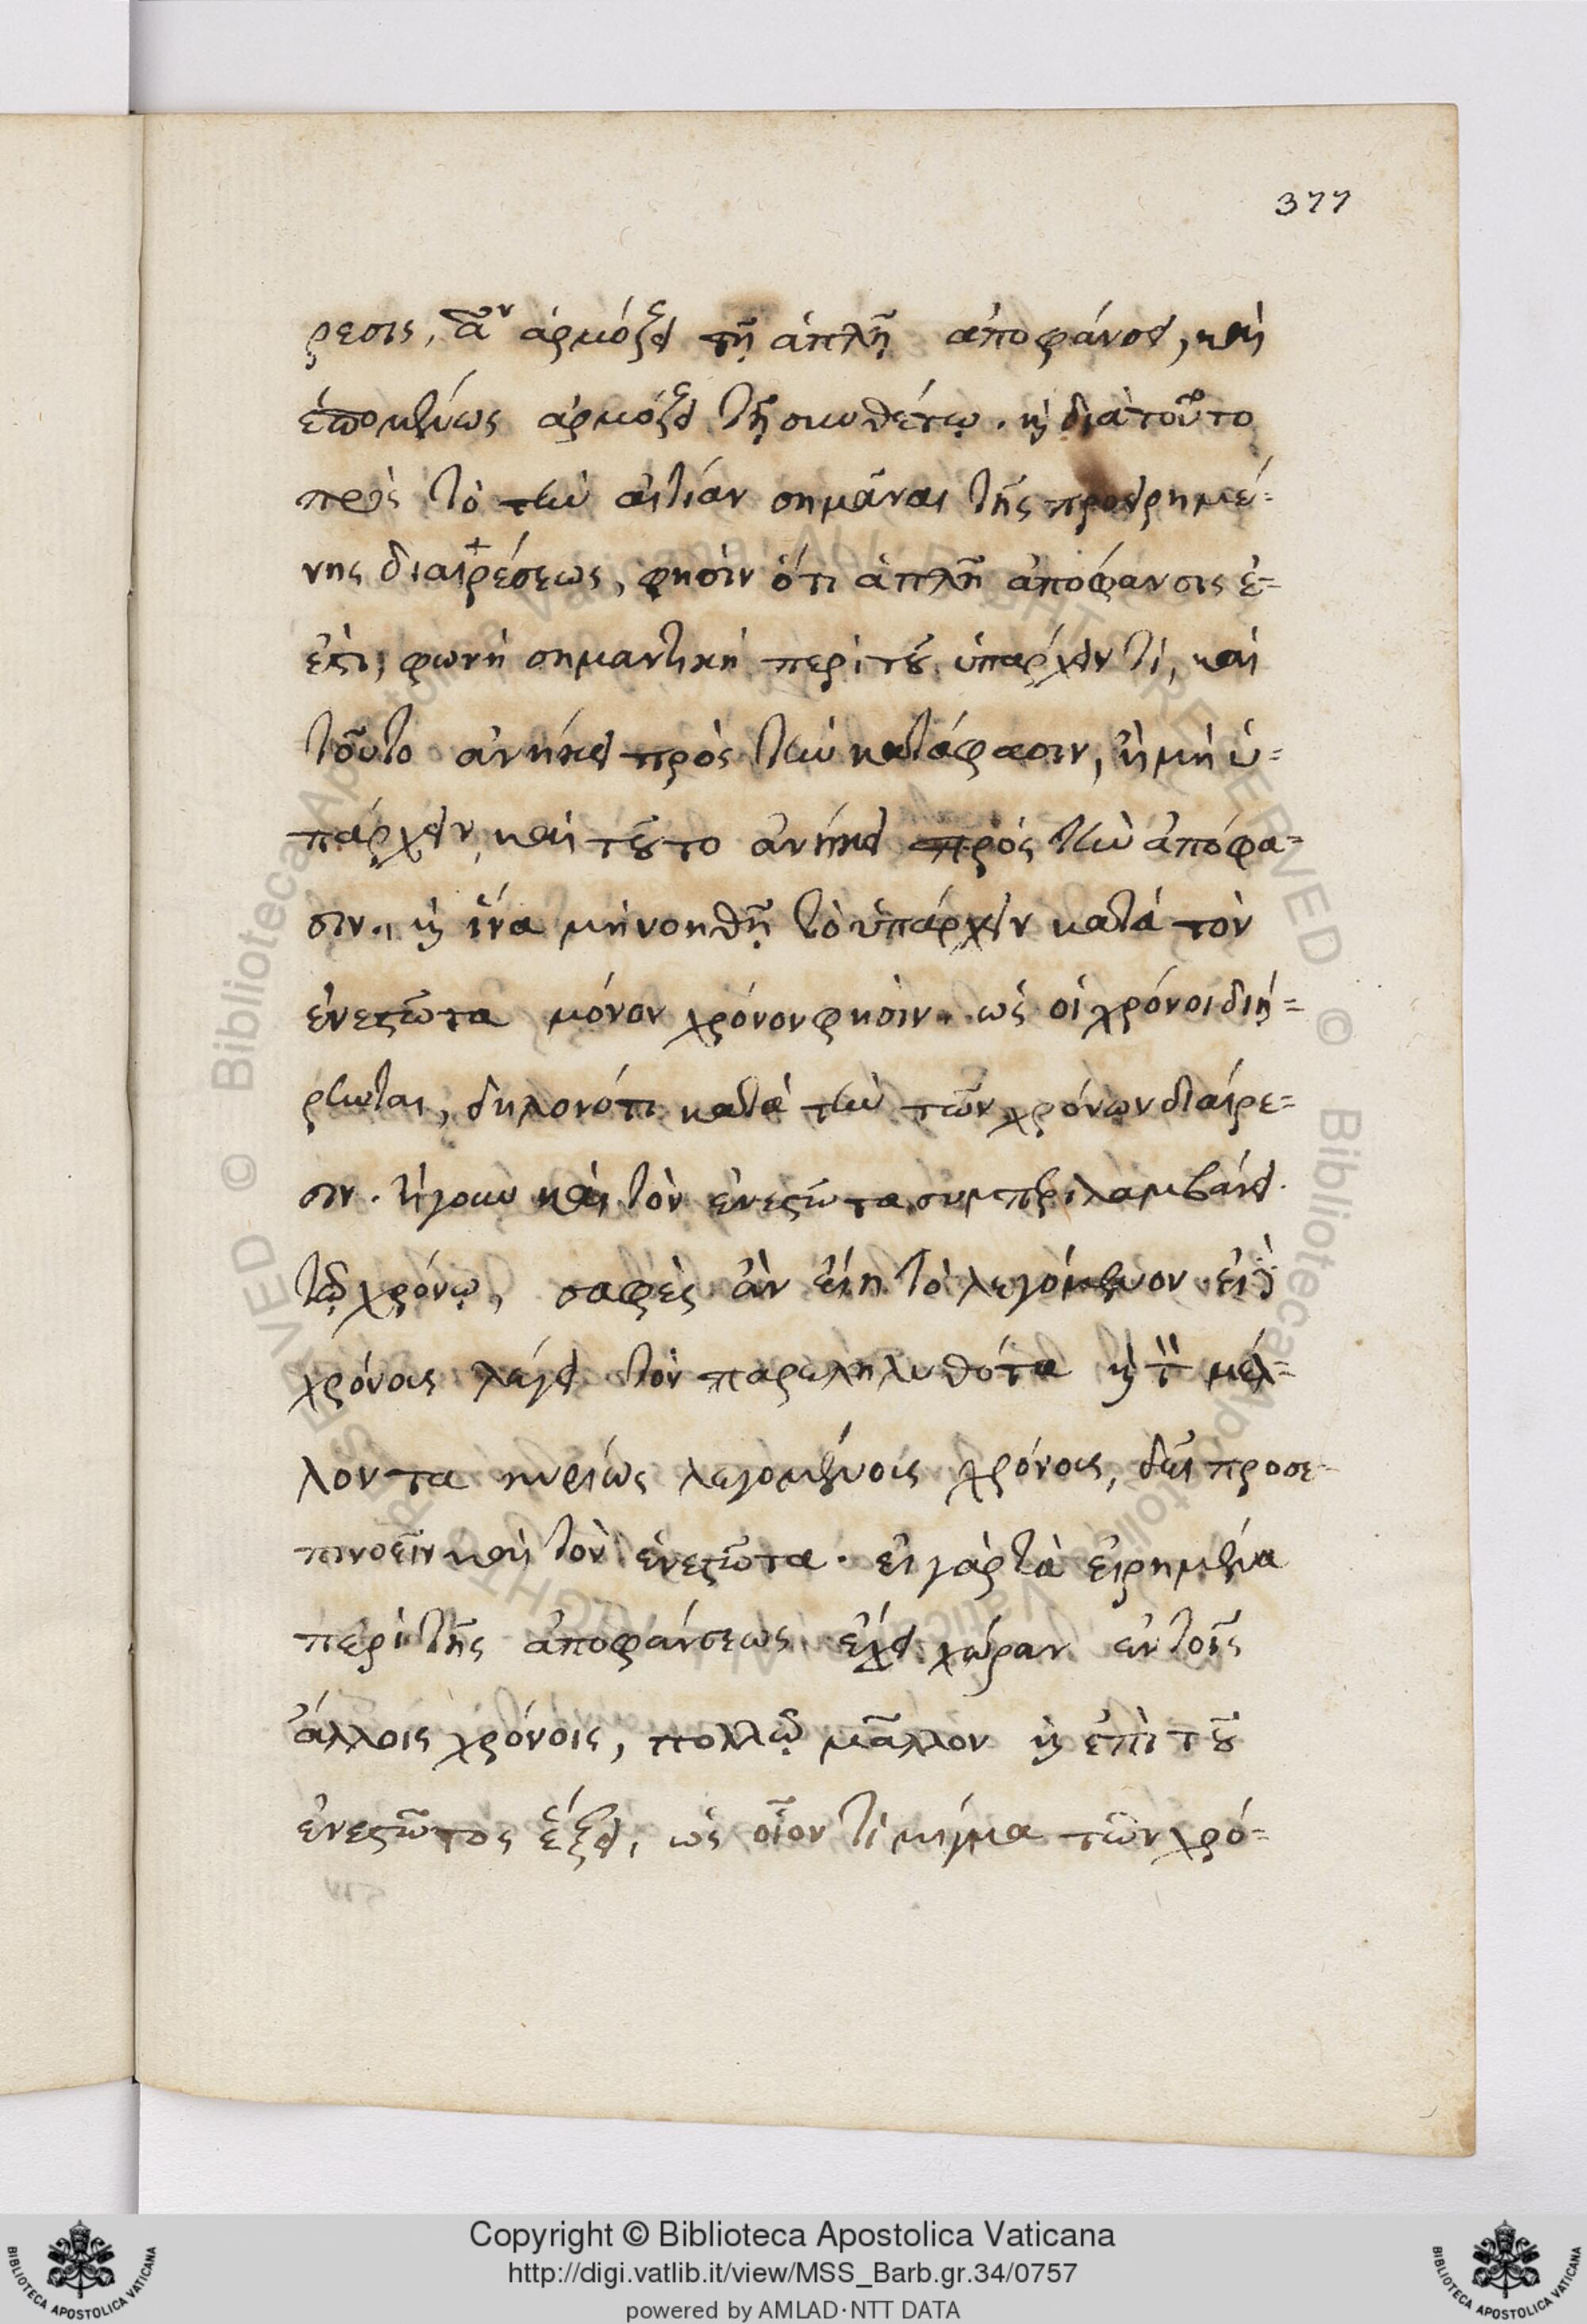 377
ρεσις, ἂν ἁρμόζει τῇ ἁπλῇ ἀποφάνσει, καὶ
ἑπομένως ἁρμόζει τῇ συνθέτῳ. καὶ διὰ τοῦτο
πρὸς τὸ τὴν αἰτίαν σημᾶναι τῆς προειρημέ=
νης διαιρέσεως, φησὶν ὅτι ἁπλῆ ἀπόφανσις ἐ=
ἐστι, φωνὴ σημαντικὴ περὶ τοῦ ὑπάρχειν τί, καὶ
τοῦτο ἀνήκει πρὸς τὴν κατάφασιν, ἢ μὴ ὑ=
πάρχειν, καὶ τοῦτο ἀνήκει πρὸς τὴν ἀπόφα=
σιν., καὶ ἵνα μὴ νοηθῇ τὸ ὑπάρχειν κατὰ τὸν
ἐνεστῶτα μόνον χρόνον φησὶν. ὡς οἱ χρόνοι διῄ=
ρηνται, δηλονότι κατὰ τὴν τῶν χρόνων διαίρε=
σιν. ἤγουν καὶ τὸν ἐνεστῶτα συμπεριλαμβάνει.
τῷ χρόνῳ, σαφὲς ἂν εἴη τὸ λεγόμενον
χρόνοις λέγει τὸν παρεληλυθότα καὶ τὸν μέλ=
λοντα κυρίως λεγομένοις χρόνοις, δεῖ προσε=
πινοεῖν καὶ τὸν ἐνεστῶτα. εἰ γὰρ τὰ εἰρημένα
περὶ τῆς ἀποφάνσεως ἔχει χώραν ἐν τοῖς
ἄλλοις χρόνοις, πολλῷ μᾶλλον καὶ ἐπὶ τοῦ
ἐνεστῶτος ἕξει, ὡς οἷον τὶ τῶν χρό=
Copyright © Biblioteca Apostolica Vaticana
http://digi.vatlib.it/view/MSS_Barb.gr.34/0757
powered by AMLAD·NTT DATA